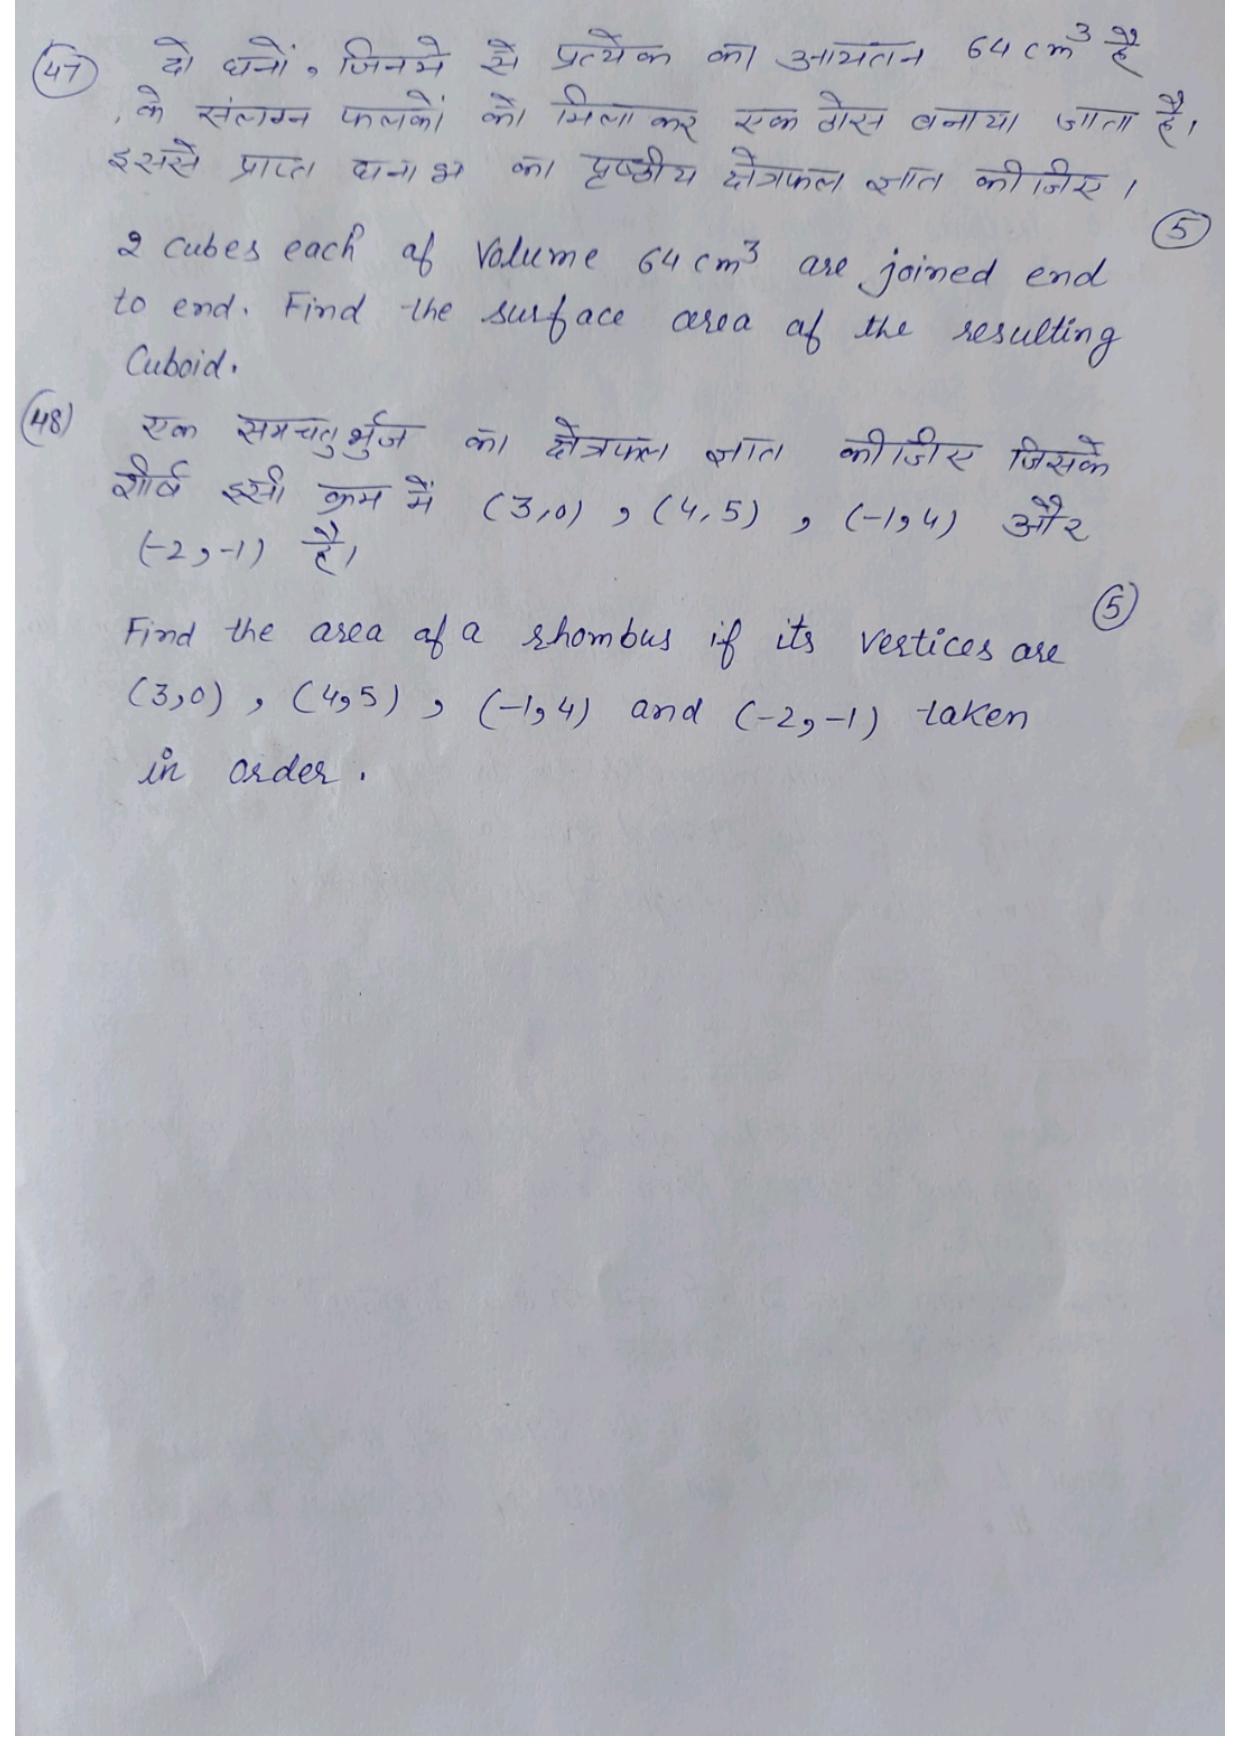 (47) दो घनों, जिनमे से प्रत्येक का आयतन 64 cm³ है
, के संलग्न फलकों को मिलाकर एक ठोस बनाया जाता है।
इससे प्राप्त घनाभ का पृष्ठीय क्षेत्रफल ज्ञात कीजिए।
(5)
2 cubes each of Volume 64 cm³ are joined end
to end. Find the surface area of the resulting
Cuboid.
(48) एक समचतुर्भुज का क्षेत्रफल ज्ञात कीजिए जिसके
शीर्ष इसी क्रम में (3,0), (4,5), (-1,4) और
(-2,-1) है।
(5)
Find the area of a rhombus if its vertices are
(3,0), (4,5), (-1,4) and (-2,-1) taken
in order.